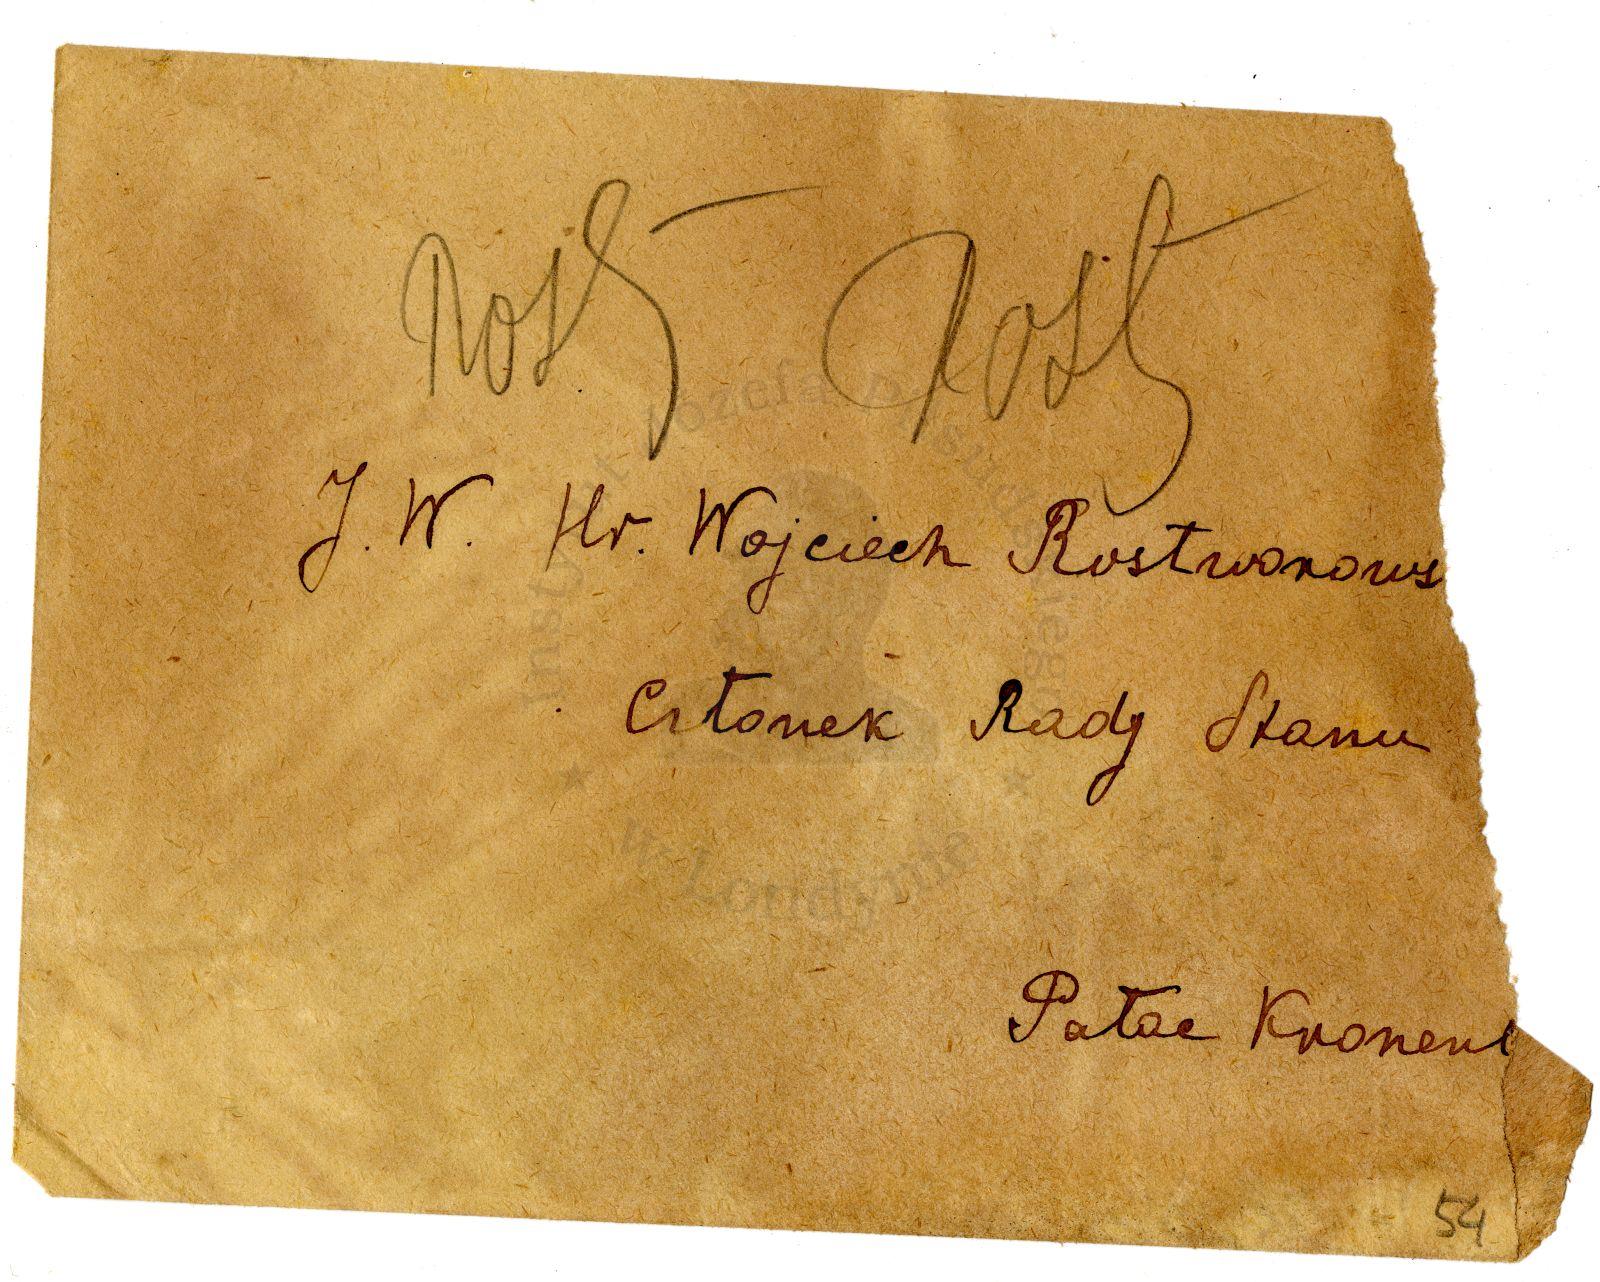 Rost Rost
J. W. Hr. Wojciech Rostworows
Członek Rady Stanu
Pałac Kronenb
54
Instytut Józefa Piłsudskiego
w Londynie